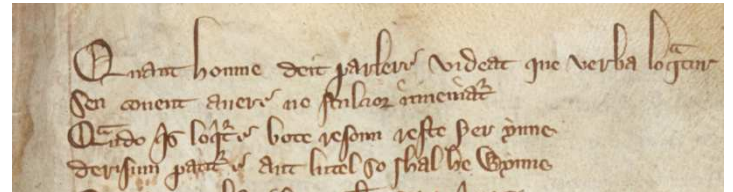 Quant honme deit parleir videat que verba loquatur
Sen covent aver ne stulcior inveniatur
Quando quis loquitur bote resoun reste þer ynne
derisum patitur ant lutel so shal he wynne